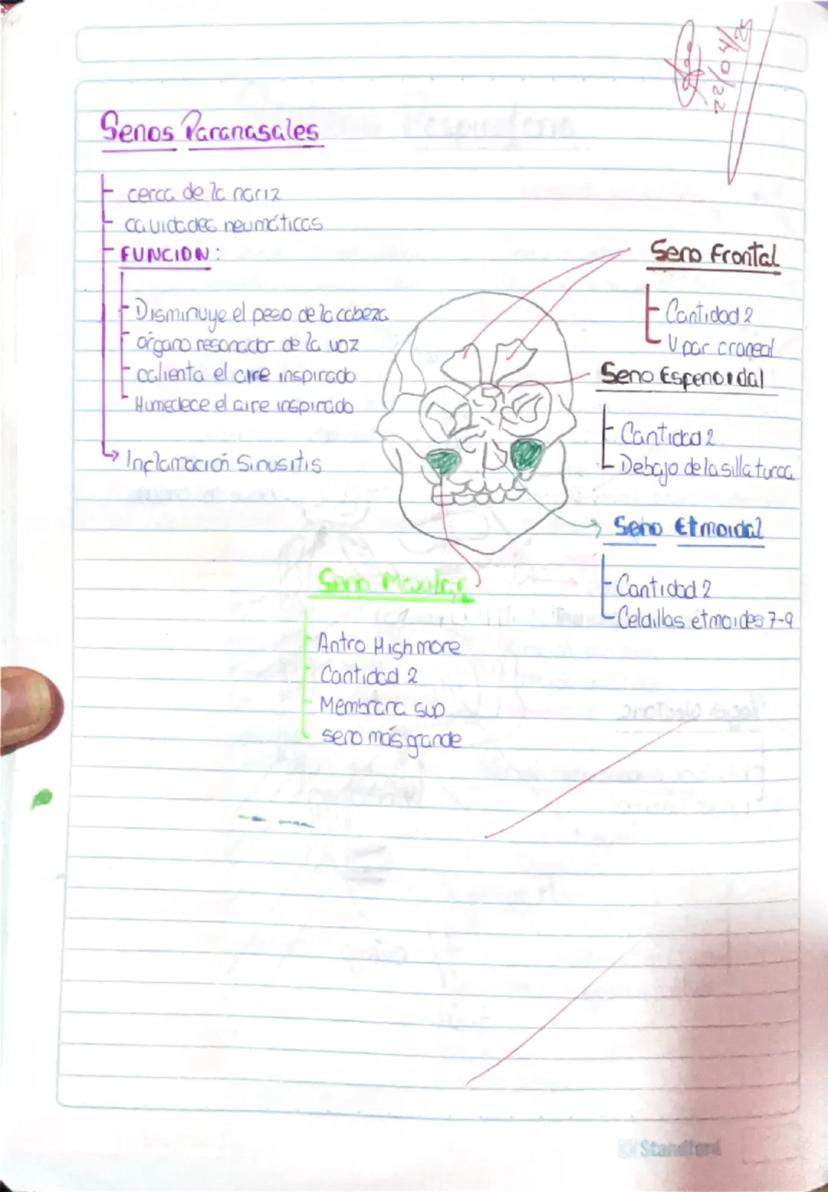 22/04/25
Senos Paranasales
cerca de la nariz
cavidades neumáticas
FUNCION:
Disminuye el peso de la cabeza
órgano resonador de la voz
calienta el aire inspirado
Humedece el aire inspirado
Inflamación Sinusitis
Seno Frontal
Cantidad 2
V par craneal
Seno Espenoidal
Cantidad 2
Debajo de la silla turca
Seno Etmoidal
Cantidad 2
Celdillas etmoides 7-9
Seno Maxilar
Antro Highmore
Cantidad 2
Membrana sup
seno más grande
Standford